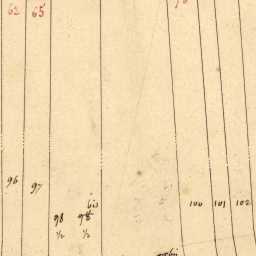 62 65
96 97
bis
98 98 100 101 102
½ ½